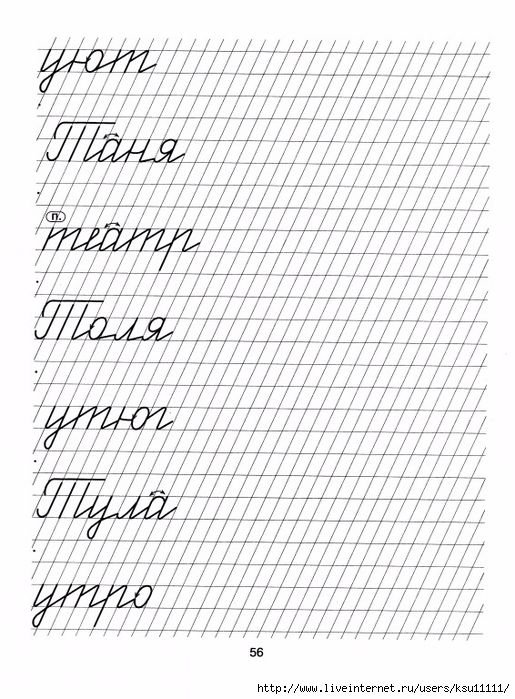 уют
Таня
п.
театр
Толя
утюг
Тула
утро
56
http://www.liveinternet.ru/users/ksu11111/